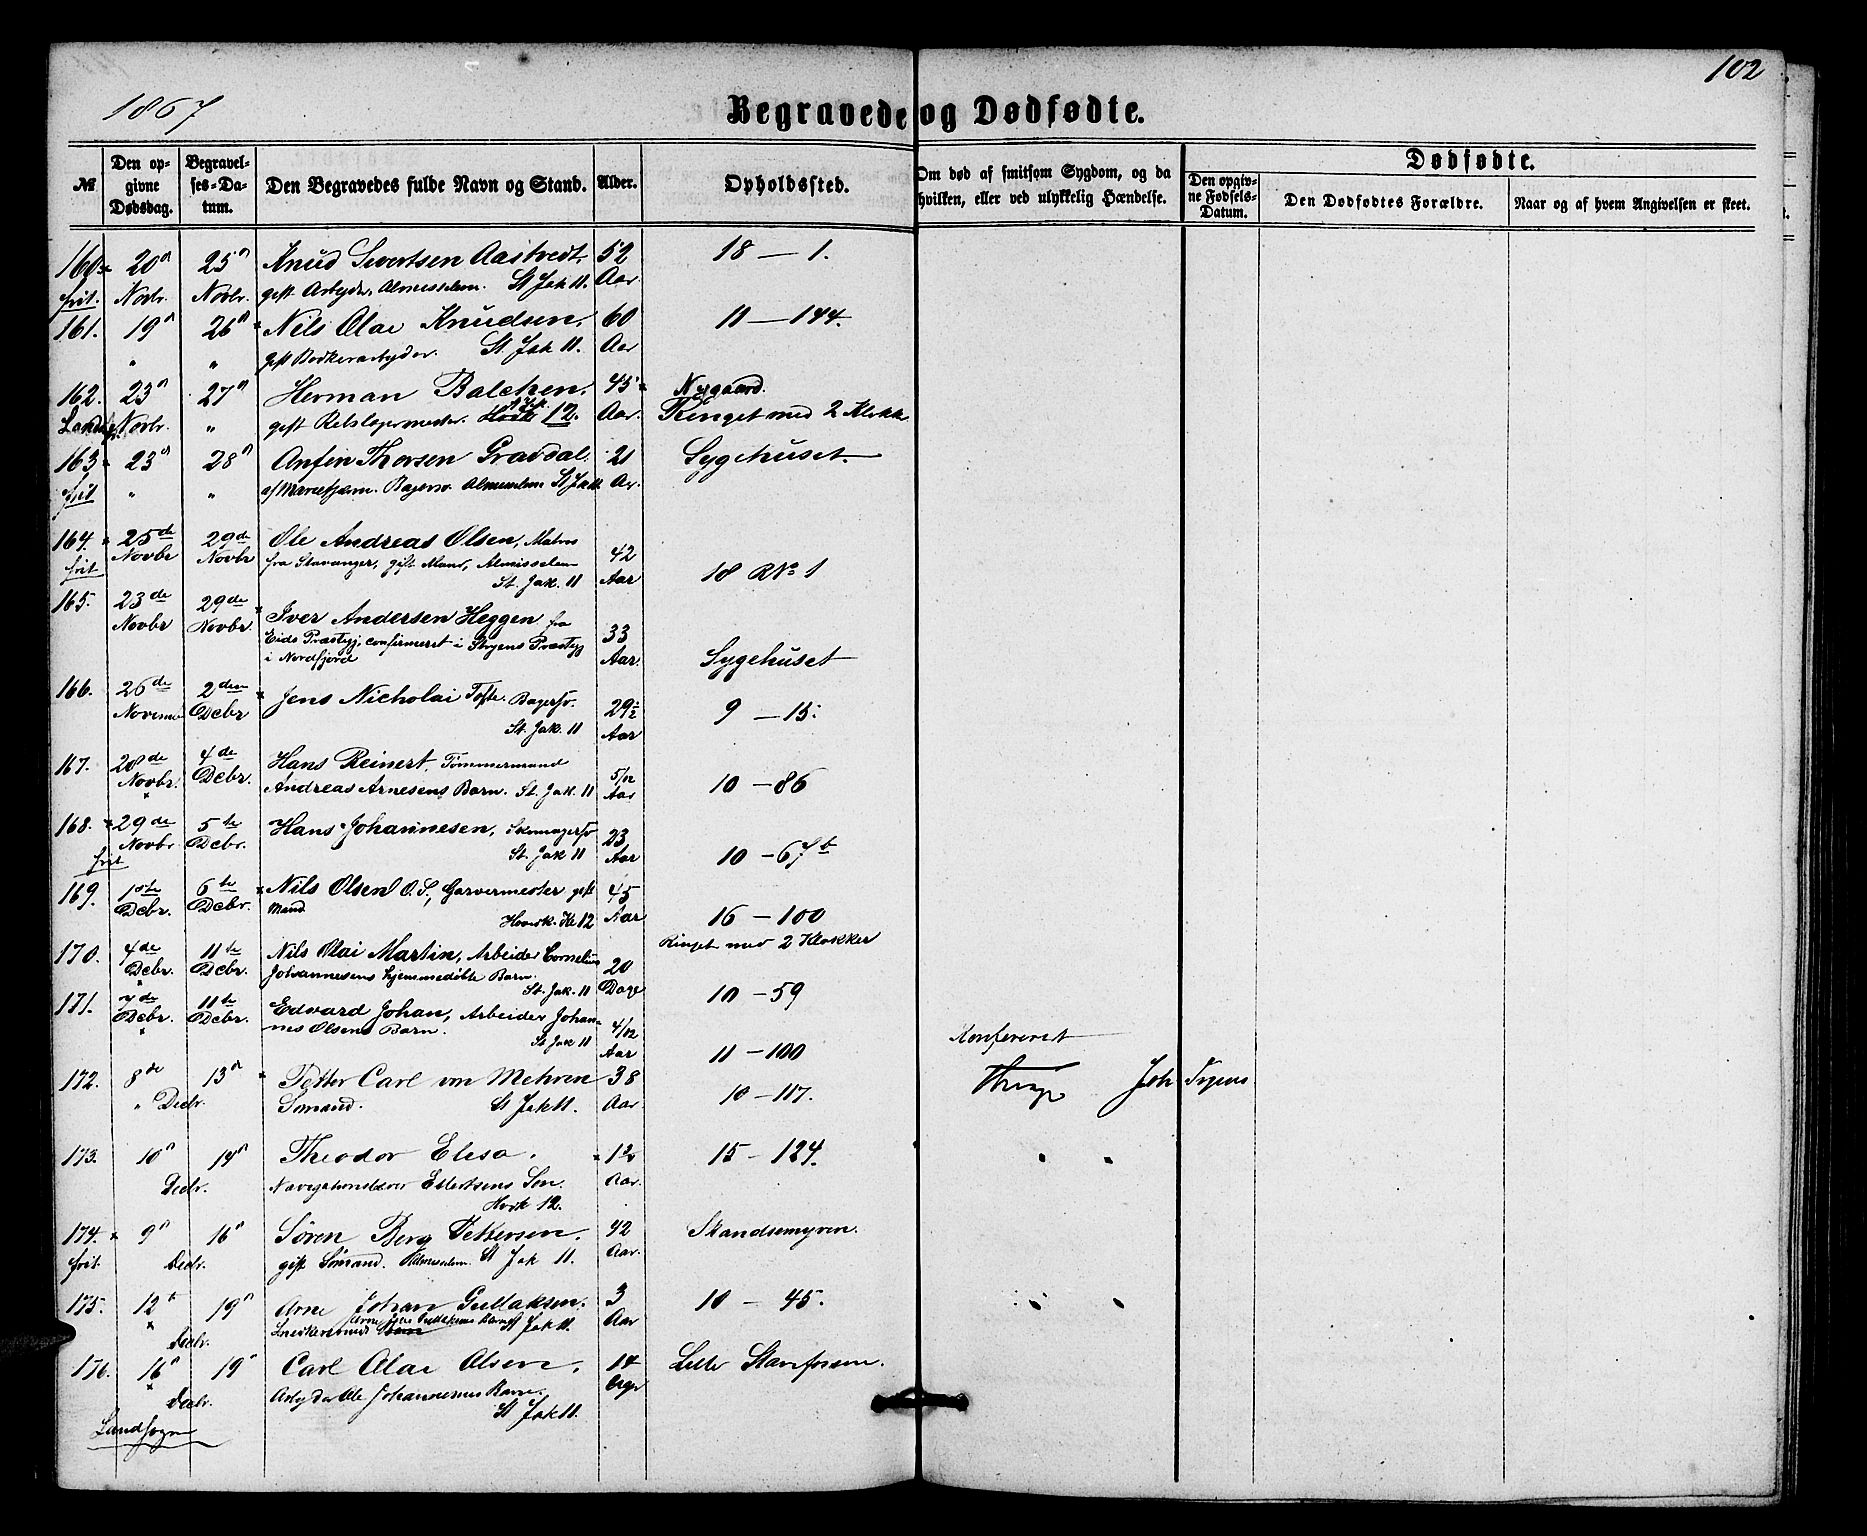 102
1867
Begravede og Dødfødte.
№
Den opgivne Dødsdag.
Begravelses-Datum.
Den Begravedes fulde Navn og Stand.
Alder.
Opholdssted.
Om død af smitsom Sygdom, og da hvilken, eller ved ulykkelig Hændelse.
Dødfødte.
Den opgivne Fødsels-Datum.
Den Dødfødtes Forældre.
Naar og af hvem Angivelsen er skeet.
160 20 25 Knud Sivertsen Aastvedt, 52 18 — 1.
frit. Novbr. Novbr. gift Arbyder, Almisselem. St Jak 11. Aar
161. 19 26 Nils Olai Knudsen, 60 11 — 144.
" " gift Bødkerarbyder. St. Jak 11. Aar
162. 23 27 Herman Balchen, 45 Nygaard.
Landsogn Novbr. " gift Rebslagermester. 12. Aar. Ringet med 2 Klokk
163 23 28 Anfin Thorsen Gravdal. 21 Sygehuset.
frit " " Almisselem St Jak 11. Aar.
164. 25de 29de Ole Andreas Olsen, Matros
frit Novbr Novbr fra Stavanger, gift Mand, Almisselem 42
St. Jak. 11 Aar 18 RNo 1
165. 23de 29de Iver Andersen Heggen fra
Novbr Novbr. Eids Præstgj, confirmeret i Stryens Præstgj 33
i Nordfjord Aar. Sygehuset
166. 26de 2den Jens Nicholai Tofte. Bagersv.
Debr 29½ 9 — 15.
St. Jak. 11 Aar
167. 28de 4de Hans Reinert, Tømmermand
Novbr. Debr. Andreas Arnesens Barn. St. Jak. 11 5/12 Aar 10 — 86
168. 29de 5te Hans Johannesen, Skomagersv 23
Novbr Debr. St. Jak 11 Aar 10 — 67b
frit
169. 1ste 6te Nils Olsen O. S., Garvermester gift 45
Debr. Debr. Mand. 12 Aar 16 — 100
Ringet med 2 Klokker
170. 4de 11te Nils Olai Martin, Arbeider Cornelius
Debr. Debr. Johannesens hjemmedøbte Barn. 20
St. Jak. 11 Dage 10 — 59
171. 7de 11te Edvard Johan, Arbeider Johan-
Debr. Debr. nes Olsens Barn. 4/12
St Jak 11 Aar 11 — 100
Konfereret
172. 8de 13 Petter Carl von Mehren 38 10 — 117.
" Decbr. Sømand. St Jak 11. Aar.
173. 10 19 Theodor Elisa. 15 — 124.
Decbr. Navigationslærer Ellertsens Søn. Aar.
12.
174. 9 16 Søren Berg Pettersen. 42
frit. Decbr. gift Sømand. Almisselem. St Jak 11. Aar.
175. 12 19 Arne Johan Gullaksen. 3 10 — 45.
Decbr. St Jak 11. Aar
176. 16 19 Carl Olai Olsen, 14
Decbr. Arbyder Ole Johannesens Barn. Dage
St Jak 11.
Landsogn